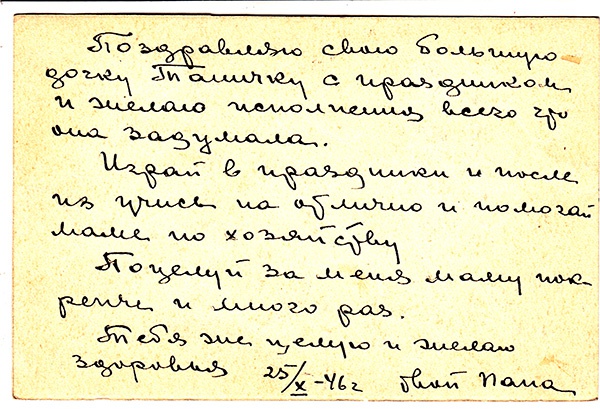 Поздравляю свою большую
дочку Таничку с праздником
и желаю исполнения всего что
она задумала.
Играй в праздники и после
их учись на отлично и помогай
маме по хозяйству
Поцелуй за меня маму пок-
репче и много раз.
Тебя же целую и желаю
здоровья 25/X-46г твой папа